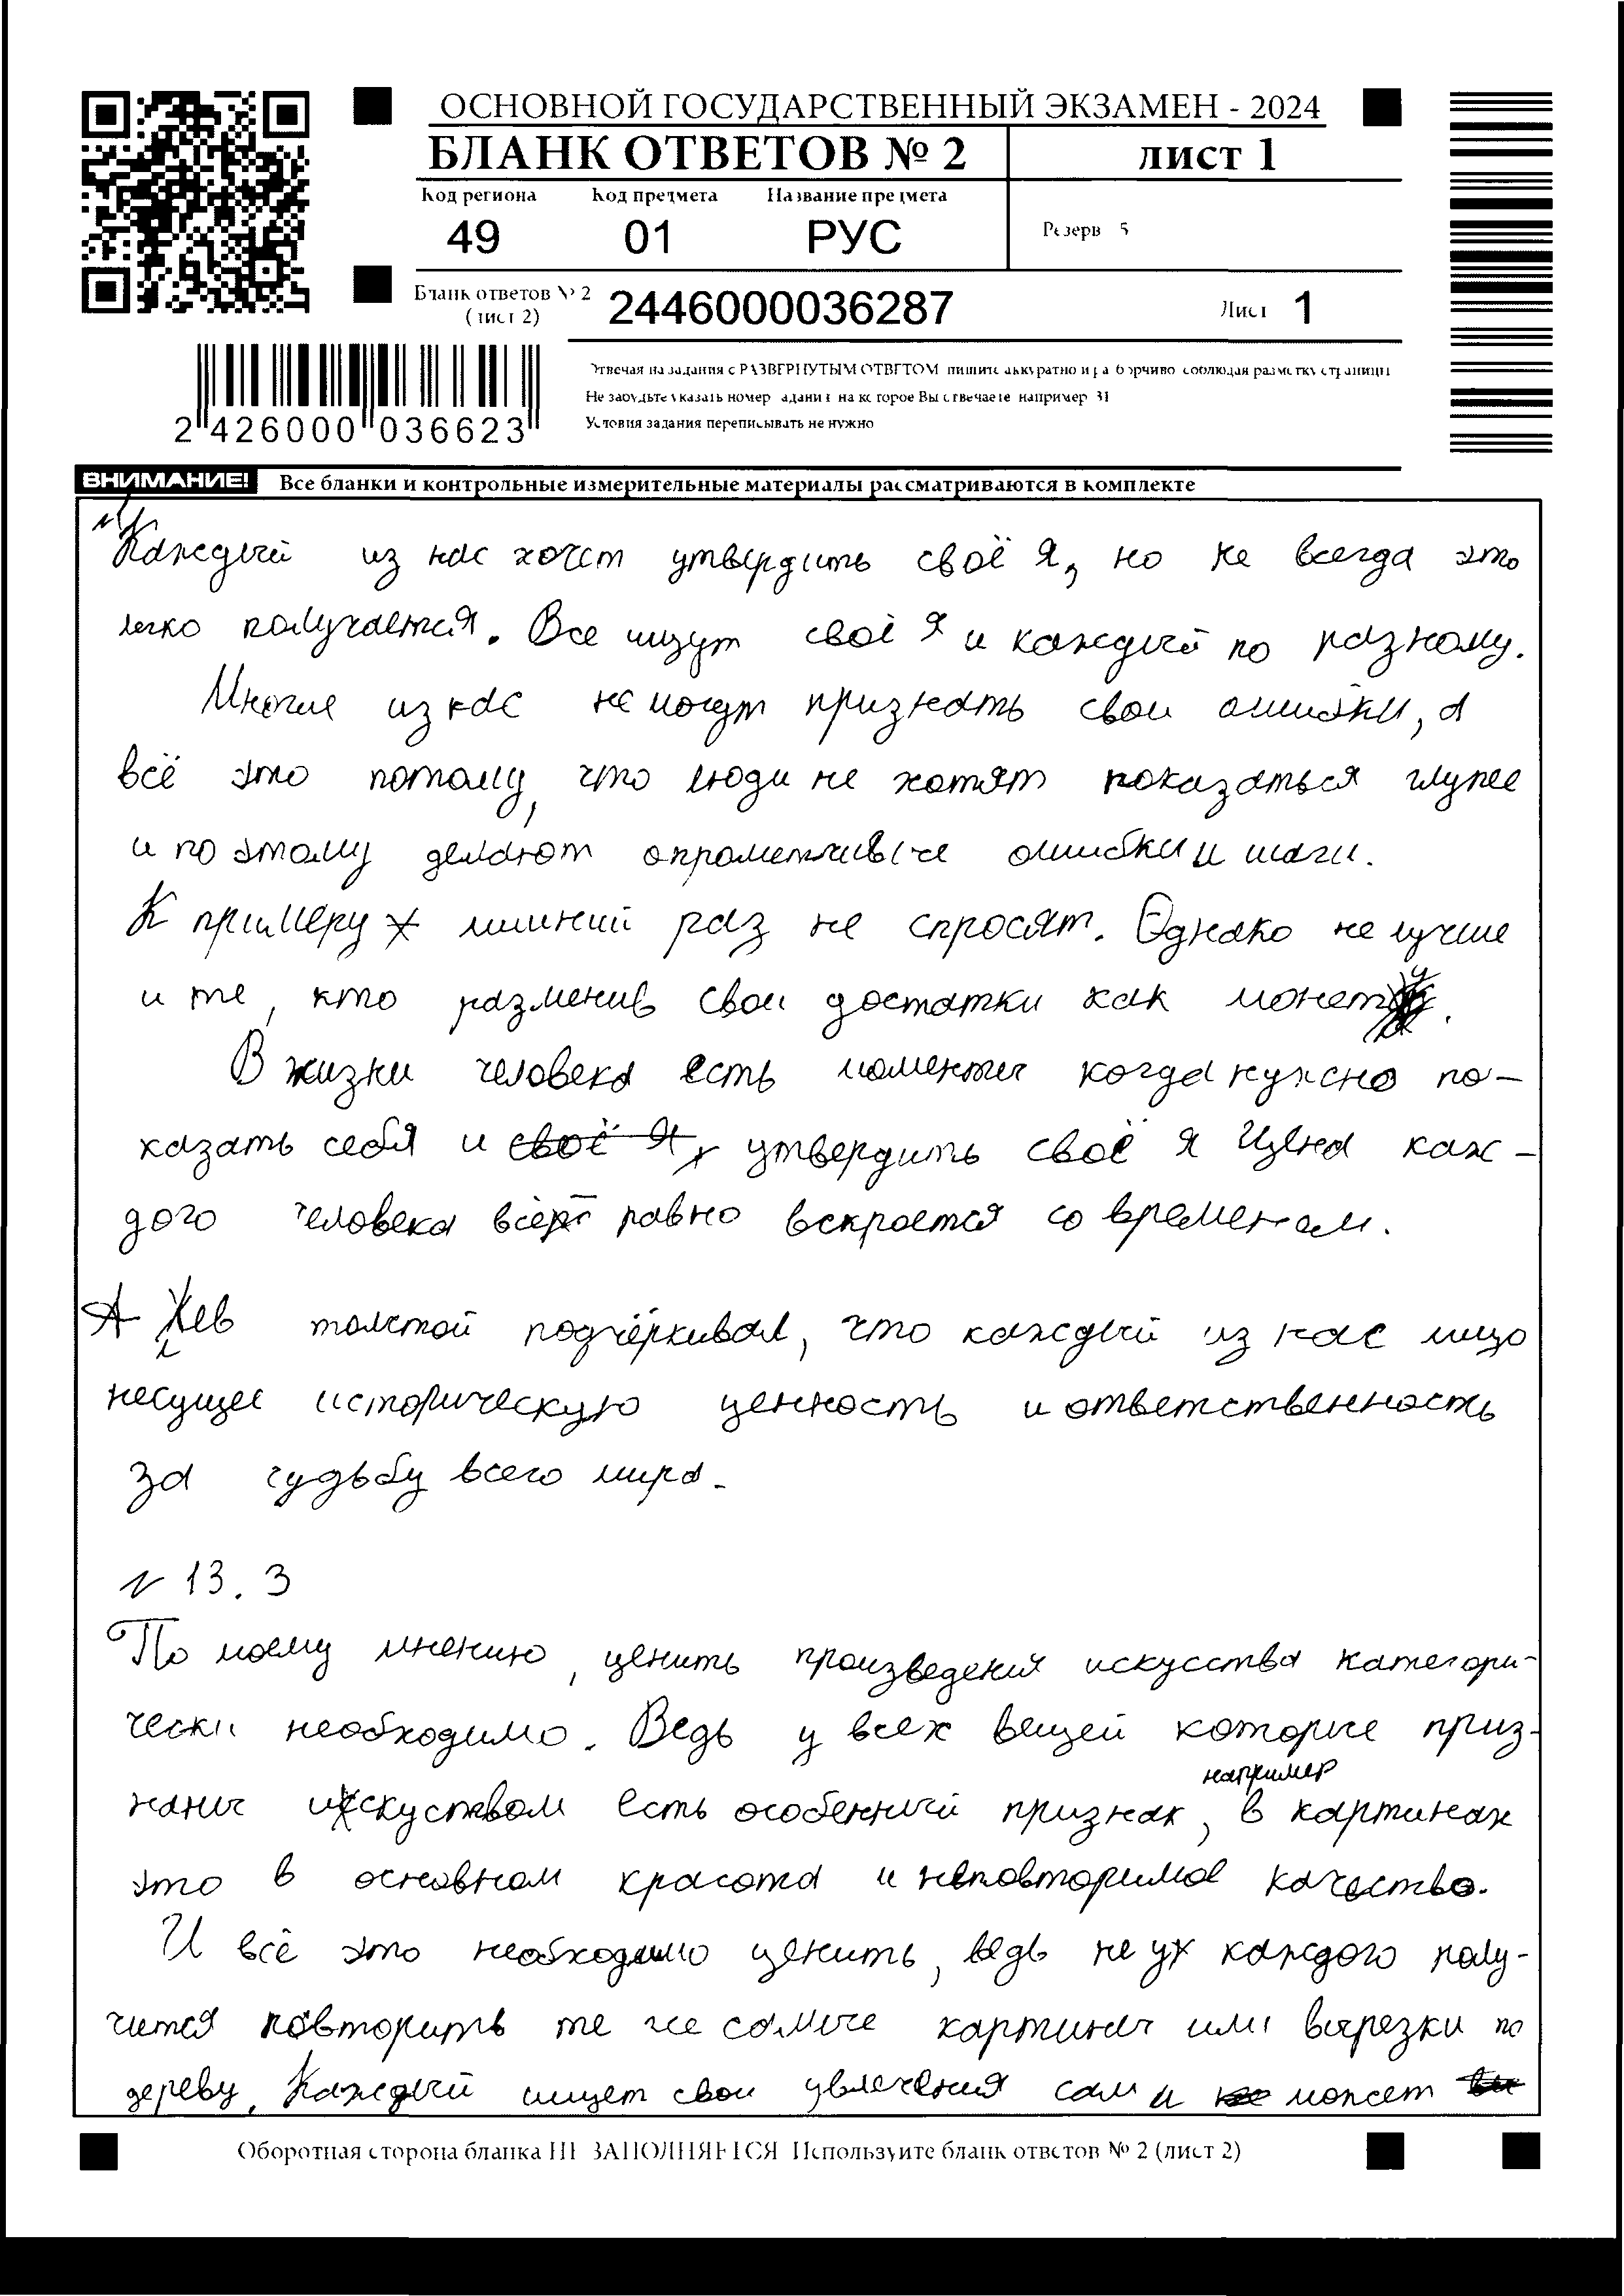 ОСНОВНОЙ ГОСУДАРСТВЕННЫЙ ЭКЗАМЕН - 2024
БЛАНК ОТВЕТОВ № 2
лист 1
Код региона Код предмета Название предмета
49 01 РУС
Резерв - 5
Бланк ответов № 2 (лист 2) 2446000036287
Лист 1
Отвечая на задания с РАЗВЕРНУТЫМ ОТВЕТОМ пишите аккуратно и разборчиво соблюдая разметку страницы
Не забудьте указать номер задания на которое Вы отвечаете например 31
Условия задания переписывать не нужно
2 426000 036623
ВНИМАНИЕ! Все бланки и контрольные измерительные материалы рассматриваются в комплекте
Каждый из нас хочет утвердить своё Я, но не всегда это
легко получается. Все ищут своё Я и каждый по разному.
Многие из нас не могут признать свои ошибки, а
всё это потому, что люди не хотят показаться глупее
и по этому делают опрометчивые ошибки и шаги.
К примеру лишний раз не спросят. Однако не лучше
и те, кто разменив свои достатки как монет.
В жизни человека есть моменты когда нужно по-
казать себя и своё Я, утвердить своё я Цена каж-
дого человека всё равно вскроется со временем.
А Лев толстой подчёркивал, что каждый из нас лицо
несущее историческую ценность и ответственность
за судьбу всего мира.
№ 13.3
По моему мнению, ценить произведения искусства категори-
чески необходимо. Ведь у всех вещей которые приз-
наны искуством есть особенный признак, например в картинах
это в основном красота и неповторимое качество.
И всё это необходимо ценить, ведь не у каждого полу-
чится повторить те же самые картины или вырезки по
дереву. Каждый ищет свои увлечения сам и может
Оборотная сторона бланка НЕ ЗАПОЛНЯЕТСЯ Используите бланк ответов № 2 (лист 2)